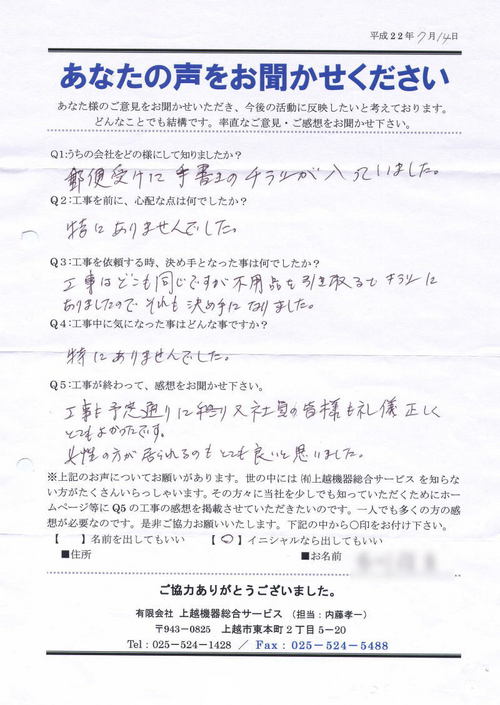 平成22年7月14日
あなたの声をお聞かせください
あなた様のご意見をお聞かせいただき、今後の活動に反映したいと考えております。
どんなことでも結構です。率直なご意見・ご感想をお聞かせ下さい。
Q1:うちの会社をどの様にして知りましたか?
郵便受けに手書きのチラシが入っていました。
Q2:工事を前に、心配な点は何でしたか?
特にありませんでした。
Q3:工事を依頼する時、決め手となった事は何でしたか?
工事はどこも同じですが不用品を引き取るとチラシに
ありましたのでそれも決め手になりました。
Q4:工事中に気になった事はどんな事ですか?
特にありませんでした。
Q5:工事が終わって、感想をお聞かせ下さい。
工事も予定通りに終り又社員の皆様も礼儀正しく
とてもよかったです。
女性の方が居られるのもとても良いと思いました。
※上記のお声についてお願いがあります。世の中には㈲上越機器総合サービス を知らな
い方がたくさんいらっしゃいます。その方々に当社を少しでも知っていただくためにホー
ムページ等に Q5 の工事の感想を掲載させていただきたいのです。一人でも多くの方の感
想が必要なのです。是非ご協力お願いいたします。下記の中から〇印をお付け下さい。
【 】名前を出してもいい 【〇】イニシャルなら出してもいい
■住所 ■お名前
ご協力ありがとうございました。
有限会社 上越機器総合サービス (担当:内藤孝一)
〒943-0825 上越市東本町2丁目5-20
Tel:025-524-1428 / Fax:025-524-5488